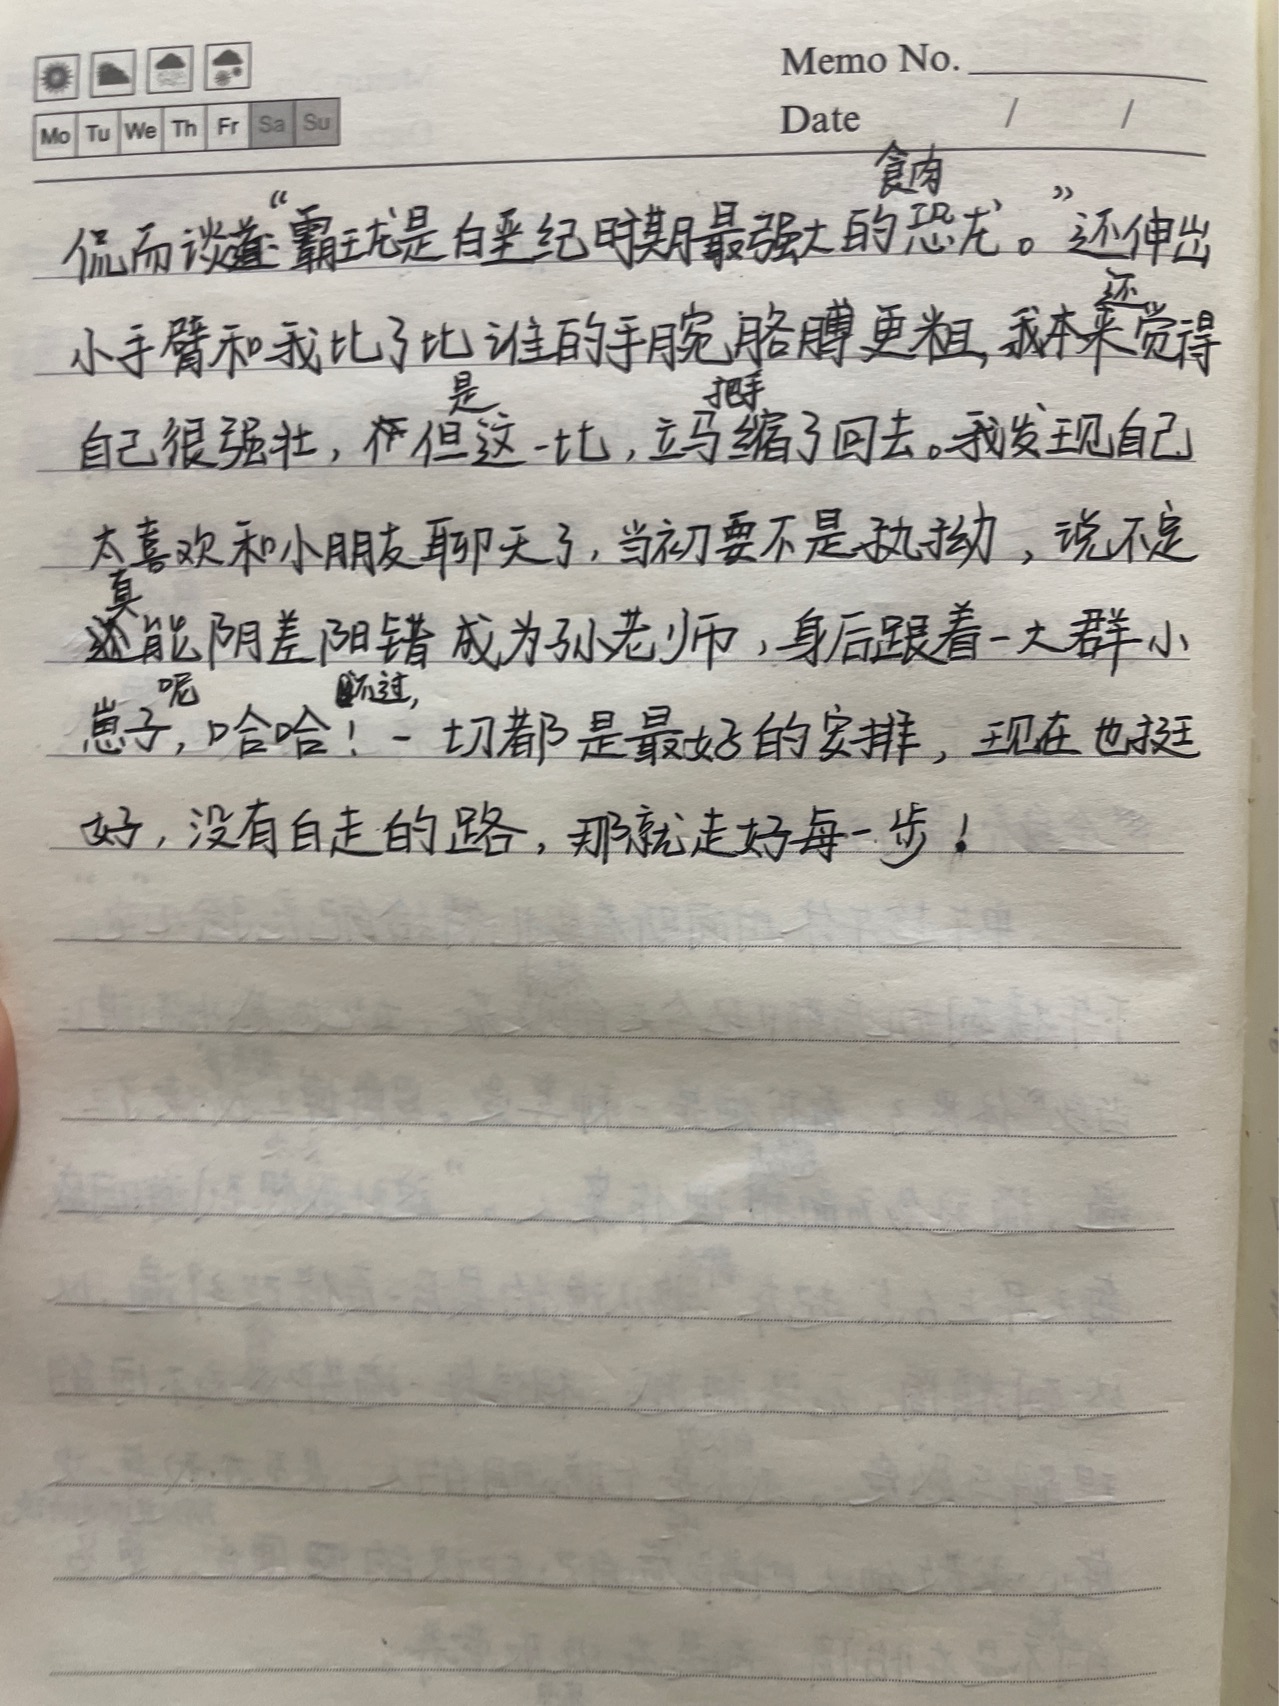 Memo No.
Mo Tu We Th Fr Sa Su
Date / /
食肉
侃而谈道:“霸王龙是白垩纪时期最强大的恐龙。”还伸出
还
小手臂和我比了比谁的手腕胳膊更粗,我本来觉得
是 把手
自己很强壮,但这一比,立马缩了回去。我发现自己
太喜欢和小朋友聊天了,当初要不是执拗,说不定
真
能阴差阳错成为孙老师,身后跟着一大群小
呢 不过,
崽子,哈哈!一切都是最好的安排,现在也挺
好,没有白走的路,那就走好每一步!